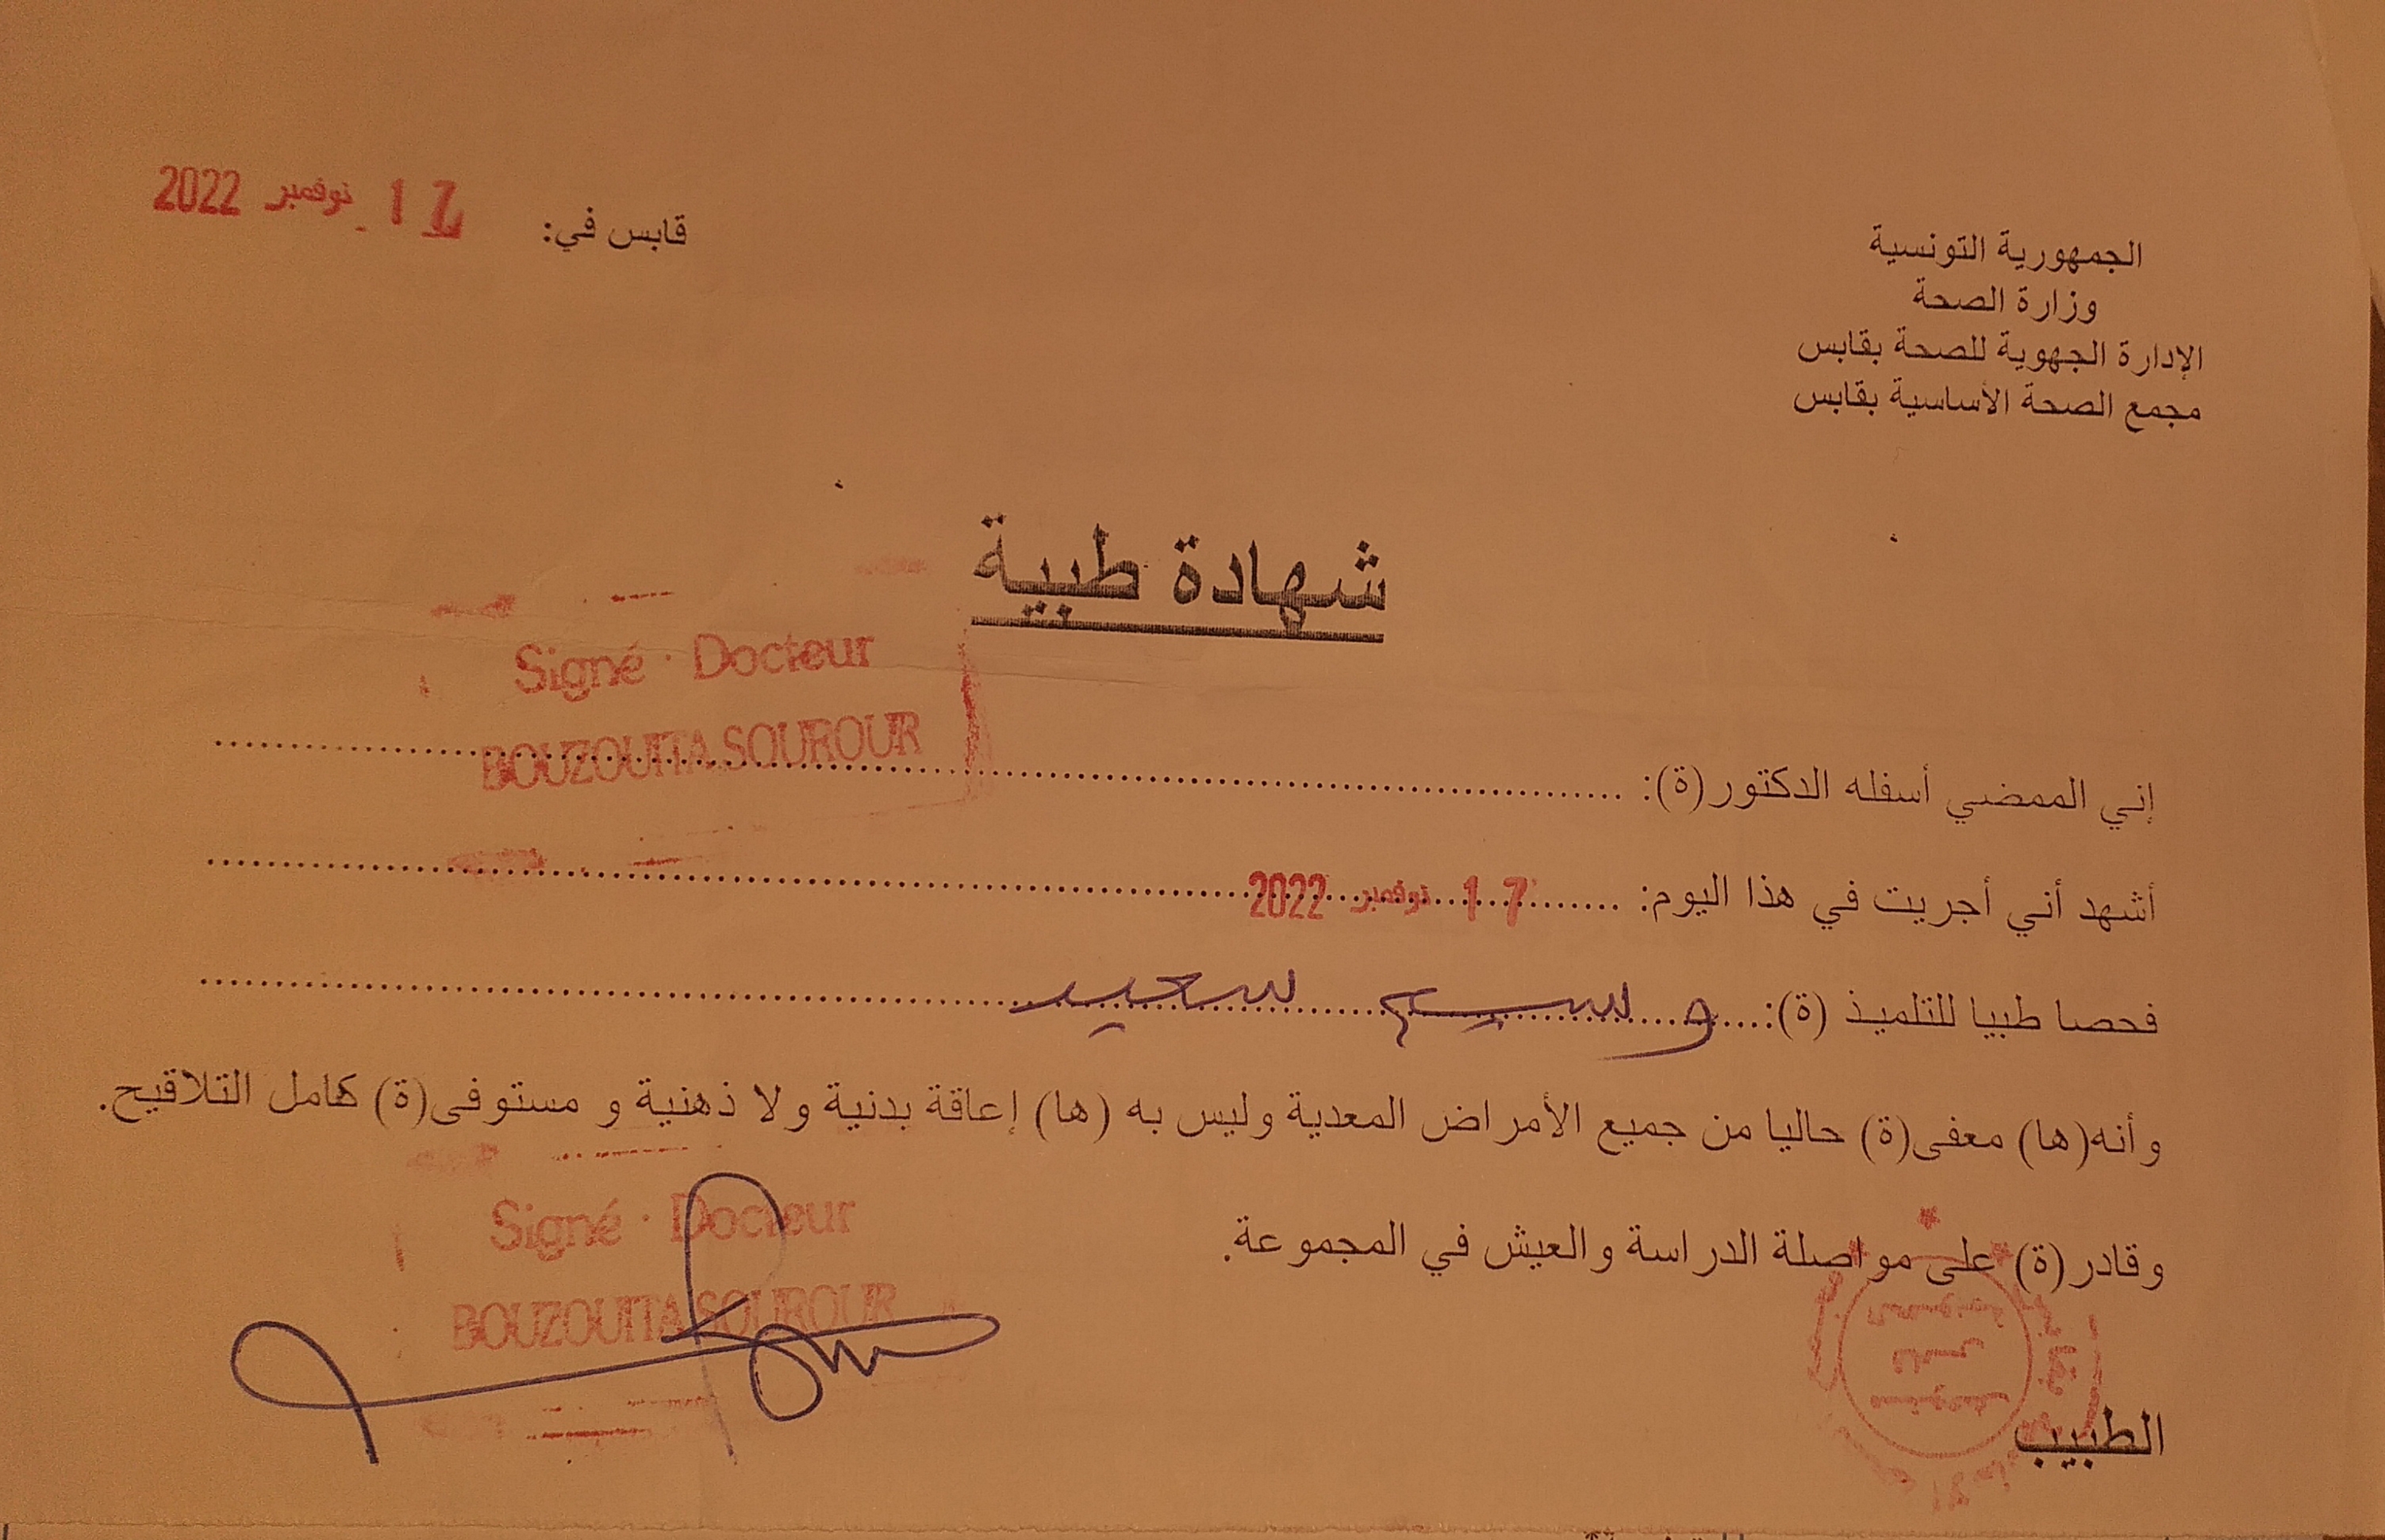 الجمهورية التونسية
وزارة الصحة
الإدارة الجهوية للصحة بقابس
مجمع الصحة الأساسية بقابس
قابس في: 17 نوفمبر 2022
شهادة طبية
Signé · Docteur
BOUZOUITA SOUROUR
إني الممضي أسفله الدكتور(ة):
أشهد أني أجريت في هذا اليوم: 17 نوفمبر 2022
فحصا طبيا للتلميذ (ة): وسيم سعيد
وأنه(ها) معفى(ة) حاليا من جميع الأمراض المعدية وليس به (ها) إعاقة بدنية ولا ذهنية و مستوفى(ة) كامل التلاقيح.
وقادر(ة) على مواصلة الدراسة والعيش في المجموعة.
Signé · Docteur
BOUZOUITA SOUROUR
الطبيب